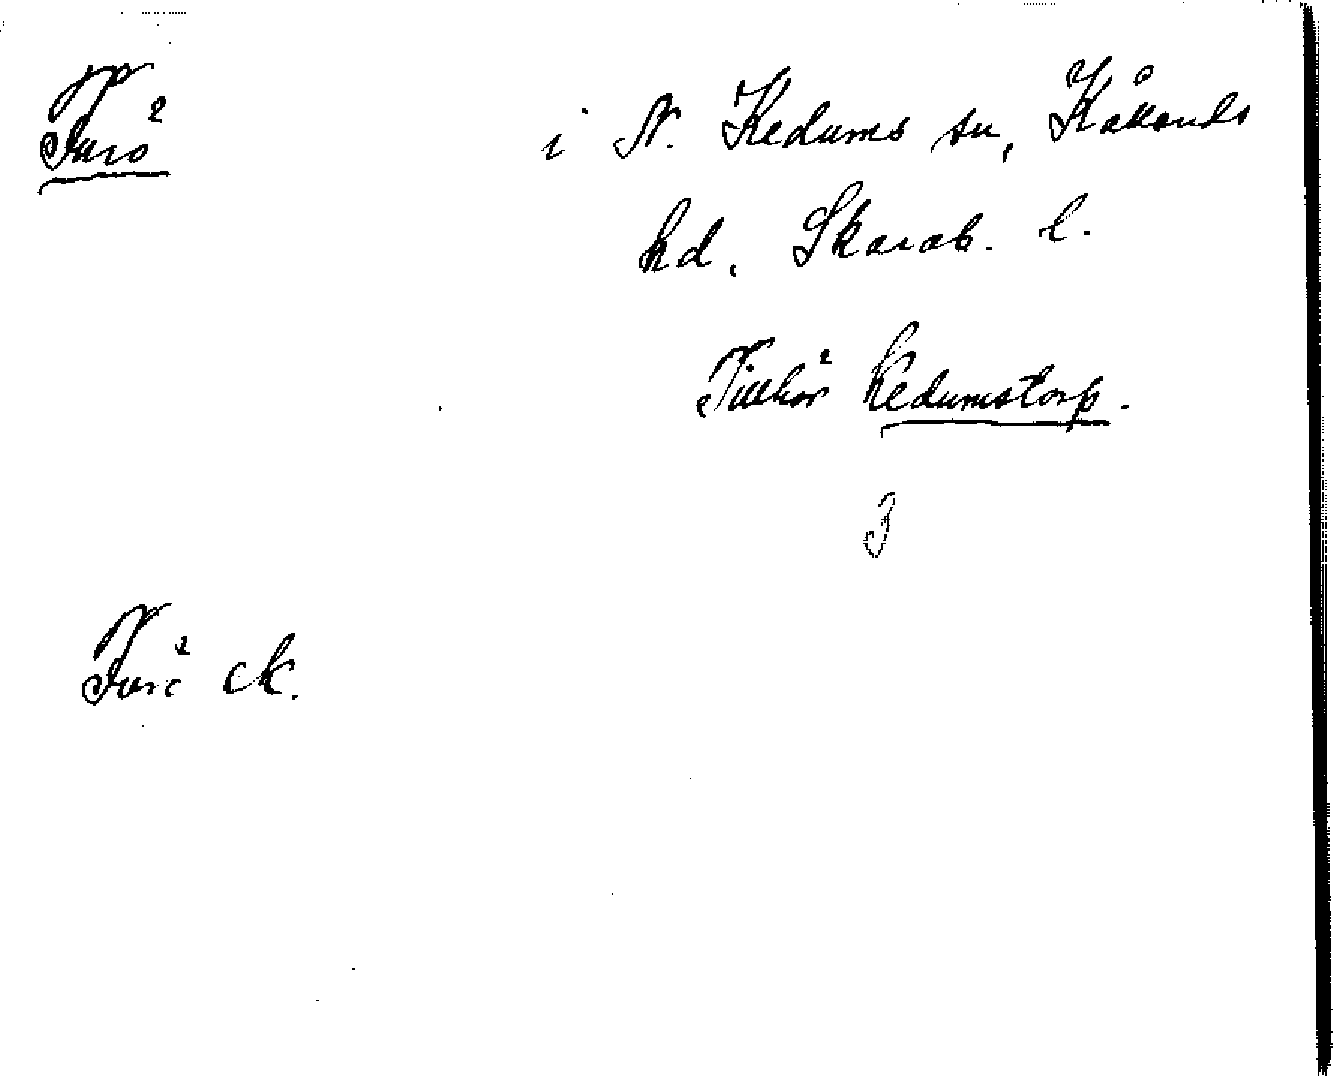 Furö
i N. Kedums sn, Kåkands
hd. Skarab. l.
Tillhör Kedumstorp.
3
Furö ek.